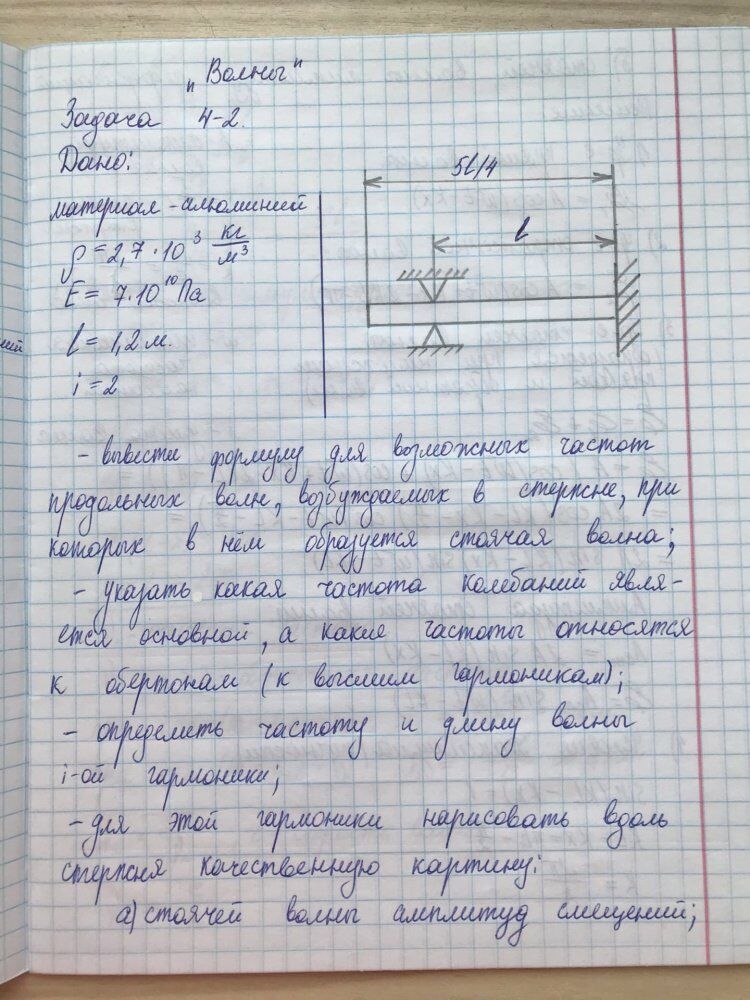 "Волны"
Задача 4-2.
Дано:
материал - алюминий
ρ = 2,7 · 10³ кг/м³
E = 7 · 10¹⁰ Па
l = 1,2 м.
i = 2
5l/4
l
- вывести формулу для возможных частот
продольных волн, возбуждаемых в стержне, при
которых в нём образуется стоячая волна;
- указать какая частота колебаний явля-
ется основной, а какие частоты относятся
к обертонам (к высшим гармоникам);
- определить частоту и длину волны
i-ой гармоники;
- для этой гармоники нарисовать вдоль
стержня качественную картину:
а) стоячей волны амплитуд смещений;